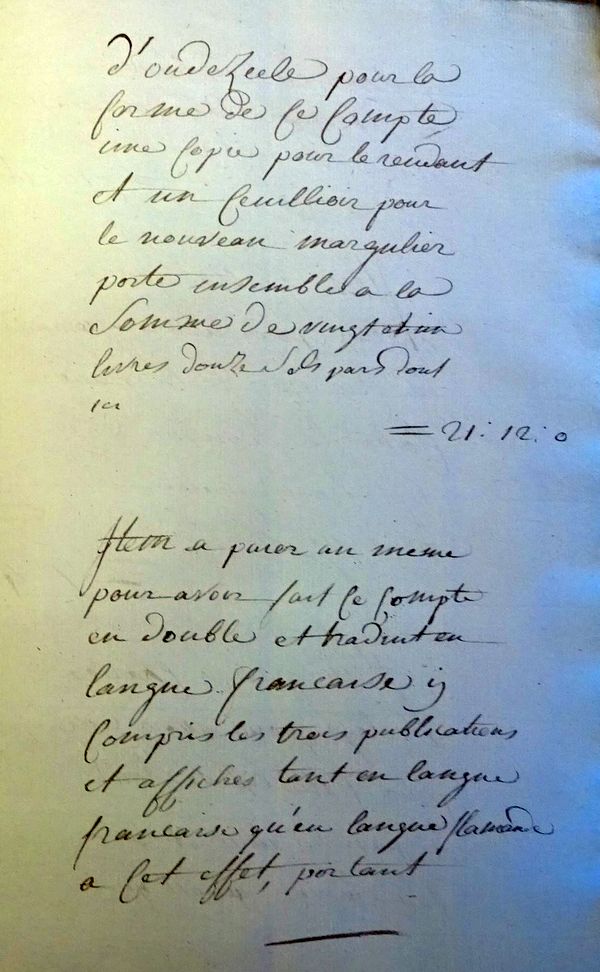 d'oudezeele pour la
forme de ce compte
une copie pour le rendant
et un ceuillioir pour
le nouveau margulier
porte ensemble a la
somme de vingt et un
livres douze sols dont
ici
= 21: 12: 0
Item a paier au meme
pour avoir fait ce compte
en double et traduit en
langue francaise ij
compris les trois publications
et affiches tant en langue
francaise qu'en langue flamande
a cet effet, portant